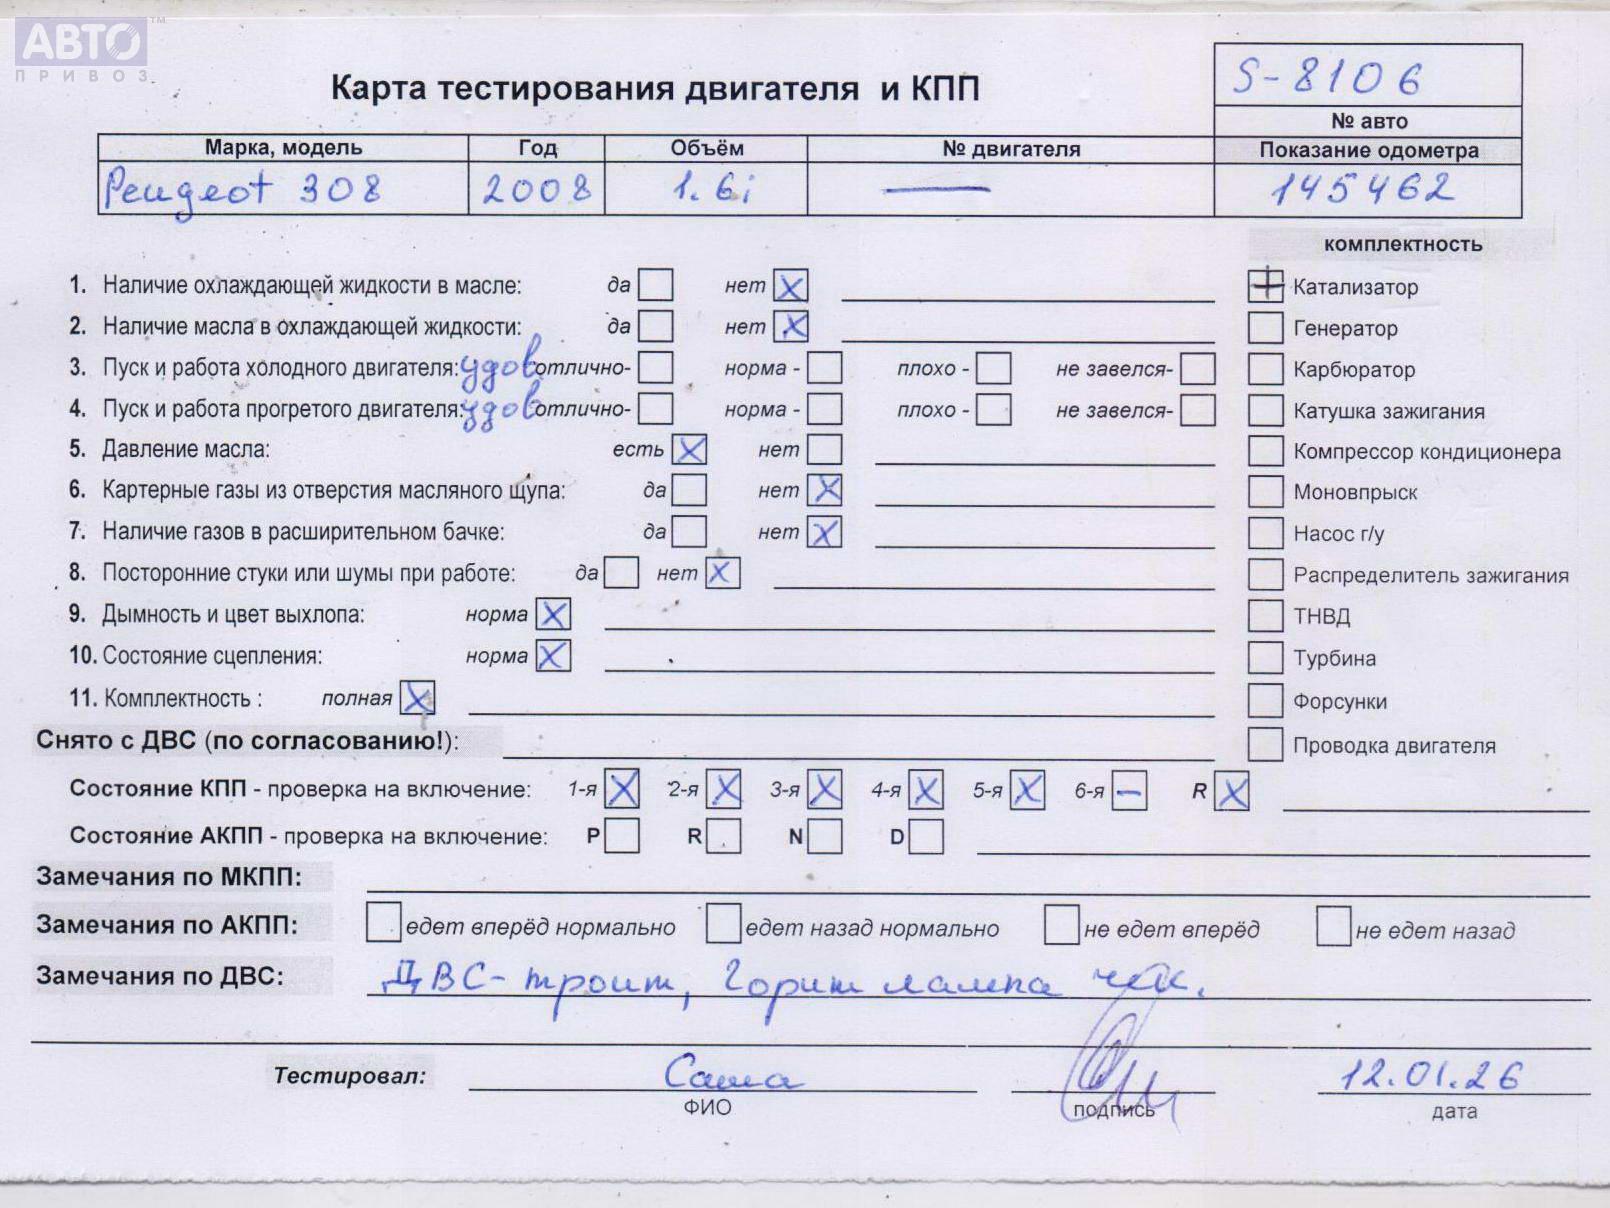 АВТО™
ПРИВОЗ
Карта тестирования двигателя и КПП
S-8106
№ авто
Марка, модель Год Объём № двигателя Показание одометра
Peugeot 308 2008 1.6i — 145462
комплектность
1. Наличие охлаждающей жидкости в масле: да нет X
Катализатор
2. Наличие масла в охлаждающей жидкости: да нет X
Генератор
3. Пуск и работа холодного двигателя: удов отлично- норма - плохо - не завелся-
Карбюратор
4. Пуск и работа прогретого двигателя: удов отлично- норма - плохо - не завелся-
Катушка зажигания
5. Давление масла: есть X нет
Компрессор кондиционера
6. Картерные газы из отверстия масляного щупа: да нет X
Моновпрыск
7. Наличие газов в расширительном бачке: да нет X
Насос г/у
8. Посторонние стуки или шумы при работе: да нет X
Распределитель зажигания
9. Дымность и цвет выхлопа: норма X
ТНВД
10. Состояние сцепления: норма X
Турбина
11. Комплектность : полная X
Форсунки
Снято с ДВС (по согласованию!):
Проводка двигателя
Состояние КПП - проверка на включение: 1-я X 2-я X 3-я X 4-я X 5-я X 6-я — R X
Состояние АКПП - проверка на включение: P R N D
Замечания по МКПП:
Замечания по АКПП: едет вперёд нормально едет назад нормально не едет вперёд не едет назад
Замечания по ДВС: ДВС- троит, Горит лампа чек.
Тестировал: Саша 12.01.26
ФИО подпись дата